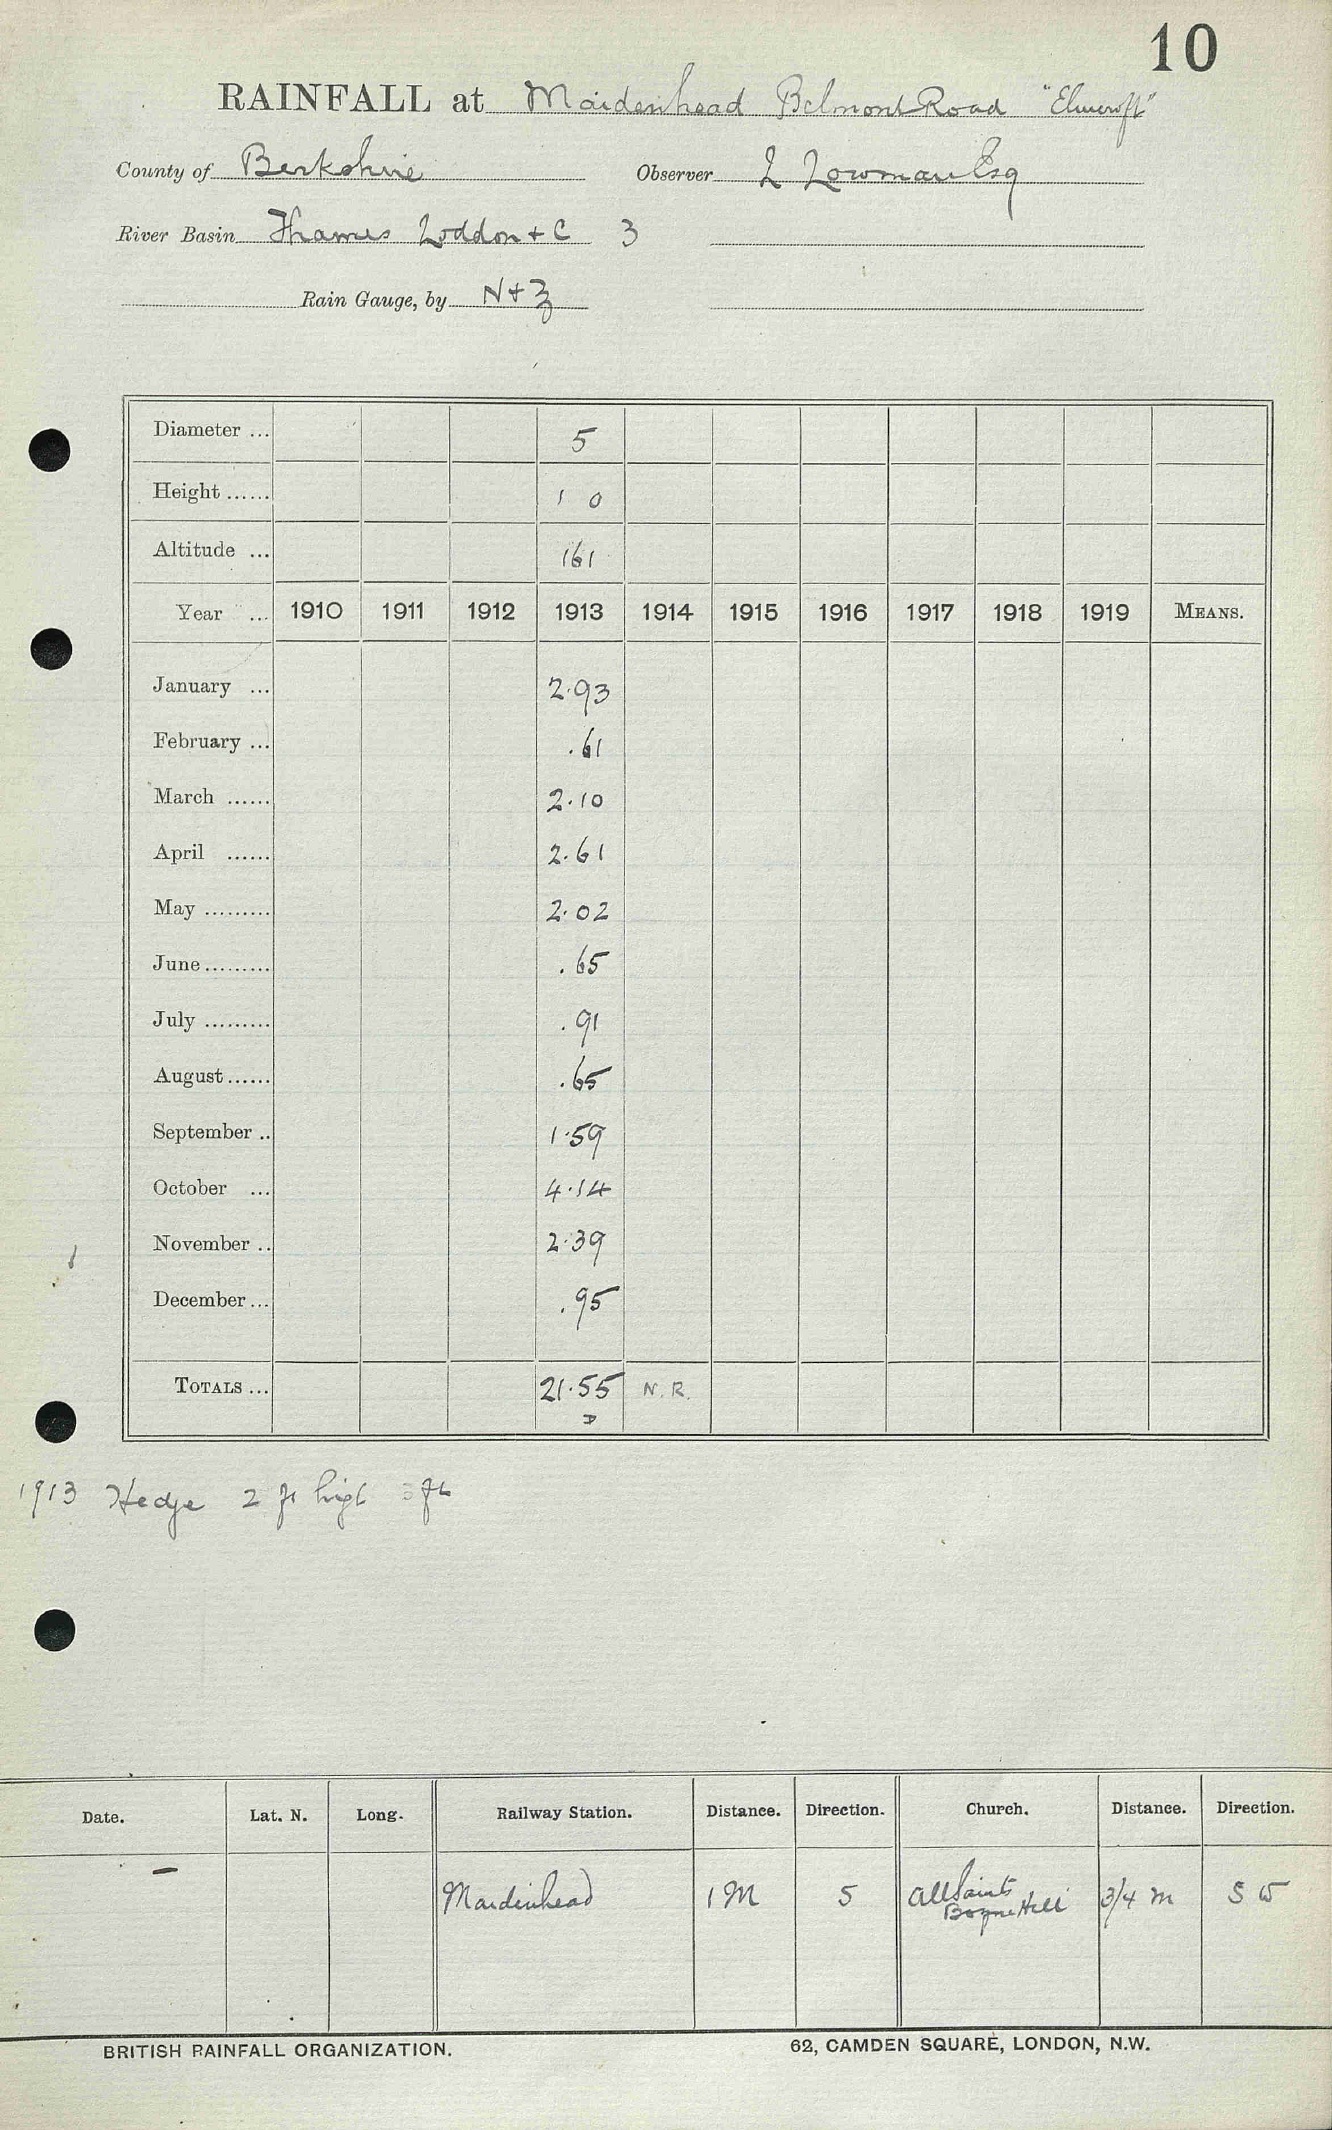 10
RAINFALL at Maidenhead Belmont Road "Elmcroft"
County of Berkshire Observer L Lowman Esq
River Basin Thames Loddon + C 3
Rain Gauge, by N + Z
Diameter ... 5
Height ...... 1 0
Altitude ... 161
Year ... 1910 1911 1912 1913 1914 1915 1916 1917 1918 1919 MEANS.
January ... 2.93
February ... .61
March ...... 2.10
April ...... 2.61
May ......... 2.02
June ......... .65
July ......... .91
August ...... .65
September .. 1.59
October ... 4.14
November .. 2.39
December ... .95
TOTALS ... 21.55 N.R.
D
1913 Hedge 2 ft high 3 ft
Date. Lat. N. Long. Railway Station. Distance. Direction. Church. Distance. Direction.
– Maidenhead 1 M S All Saints 3/4 m S W
Boyne Hill
BRITISH RAINFALL ORGANIZATION. 62, CAMDEN SQUARE, LONDON, N.W.